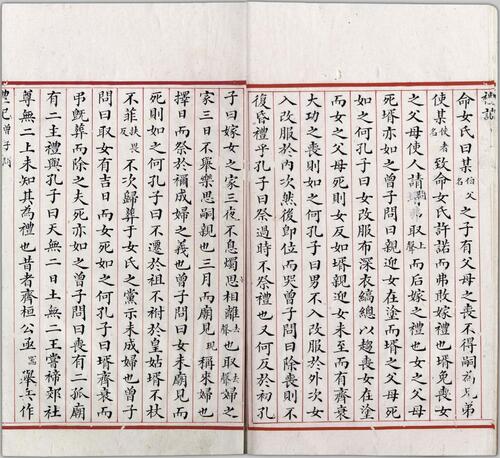 禮記
命女氏曰某伯父名之子有父母之喪不得嗣為兄弟
使某使者名致命女氏許諾而弗敢嫁禮也壻免喪女
之父母使人請壻弗取上聲而后嫁之禮也女之父母
死壻亦如之曾子問曰親迎女在塗而壻之父母死
如之何孔子曰女改服布深衣縞總以趨喪女在塗
而女之父母死則女反如壻親迎女未至而有齊衰
大功之喪則如之何孔子曰男不入改服於外次女
入改服於內次然後卽位而哭曾子問曰除喪則不
復昏禮乎孔子曰祭過時不祭禮也又何反於初孔
子曰嫁女之家三夜不息燭思相離去聲也取去聲婦之
家三日不舉樂思嗣親也三月而廟見現稱來婦也
擇日而祭於禰成婦之義也曾子問曰女未廟見而
死則如之何孔子曰不遷於祖不祔於皇姑壻不杖
不菲扶畏反不次歸葬于女氏之黨示未成婦也曾子
問曰取女有吉日而女死如之何孔子曰壻齊衰而
弔旣葬而除之夫死亦如之曾子問曰喪有二孤廟
有二主禮與孔子曰天無二日土無二王嘗禘郊社
尊無二上未知其為禮也昔者齊桓公亟器舉兵作
禮記曾子問